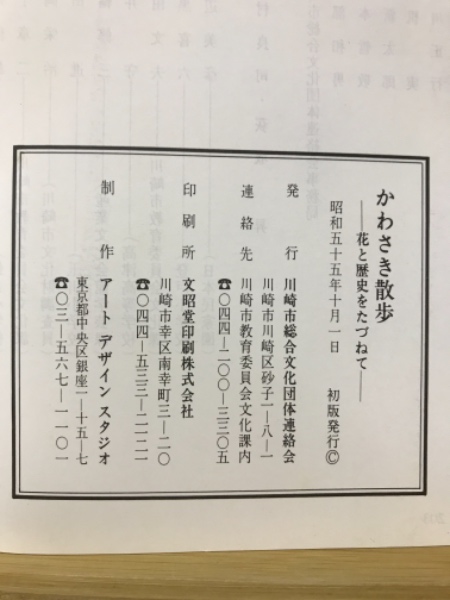 かわさき散歩
――花と歴史をたづねて――
昭和五十五年十月一日　初版発行©
発行　川崎市総合文化団体連絡会
川崎市川崎区砂子一-八-一
連絡先　川崎市教育委員会文化課内
☎〇四四-二〇〇-三三〇五
印刷所　文昭堂印刷株式会社
川崎市幸区南幸町三-二〇
☎〇四四-五三三-二一二一
制作　アート デザイン スタジオ
東京都中央区銀座一-十五-七
☎〇三-五六七-一一〇一